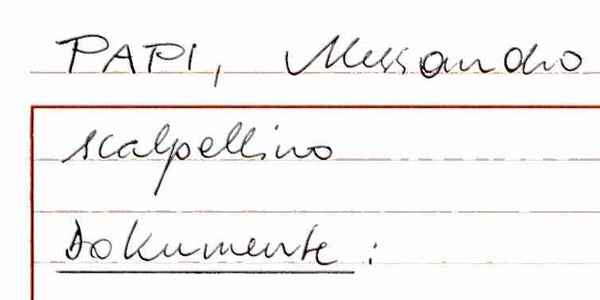 PAPI, Alessandro
scalpellino
Dokumente :